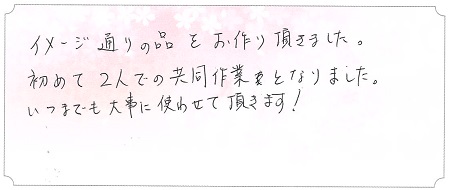 イメージ通りの品をお作り頂きました。
初めて2人での共同作業となりました。
いつまでも大事に使わせて頂きます!